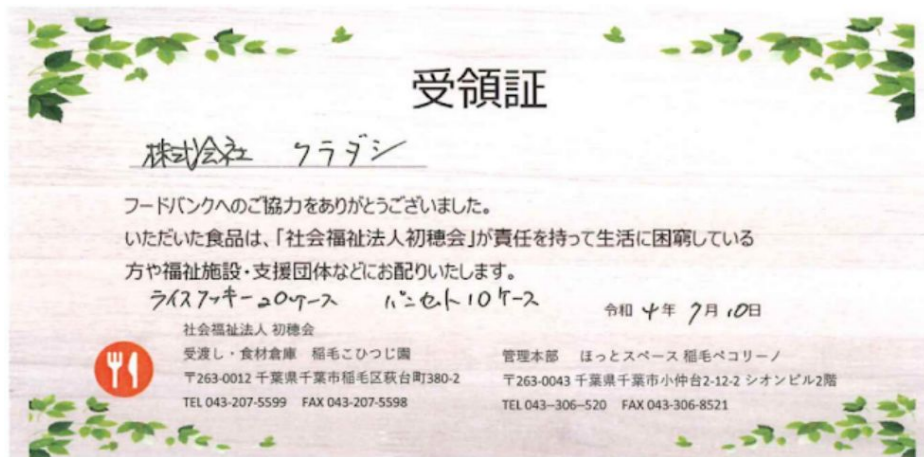 受領証
株式会社 クラダシ
フードバンクへのご協力をありがとうございました。
いただいた食品は、「社会福祉法人初穂会」が責任を持って生活に困窮している
方や福祉施設・支援団体などにお配りいたします。
ライスクッキー20ケース パンセット10ケース
令和 4年 7月 10日
社会福祉法人 初穂会
受渡し・食材倉庫 稲毛こひつじ園
〒263-0012 千葉県千葉市稲毛区萩台町380-2
TEL 043-207-5599 FAX 043-207-5598
管理本部 ほっとスペース 稲毛ペコリーノ
〒263-0043 千葉県千葉市小仲台2-12-2 シオンビル2階
TEL 043--306--520 FAX 043-306-8521